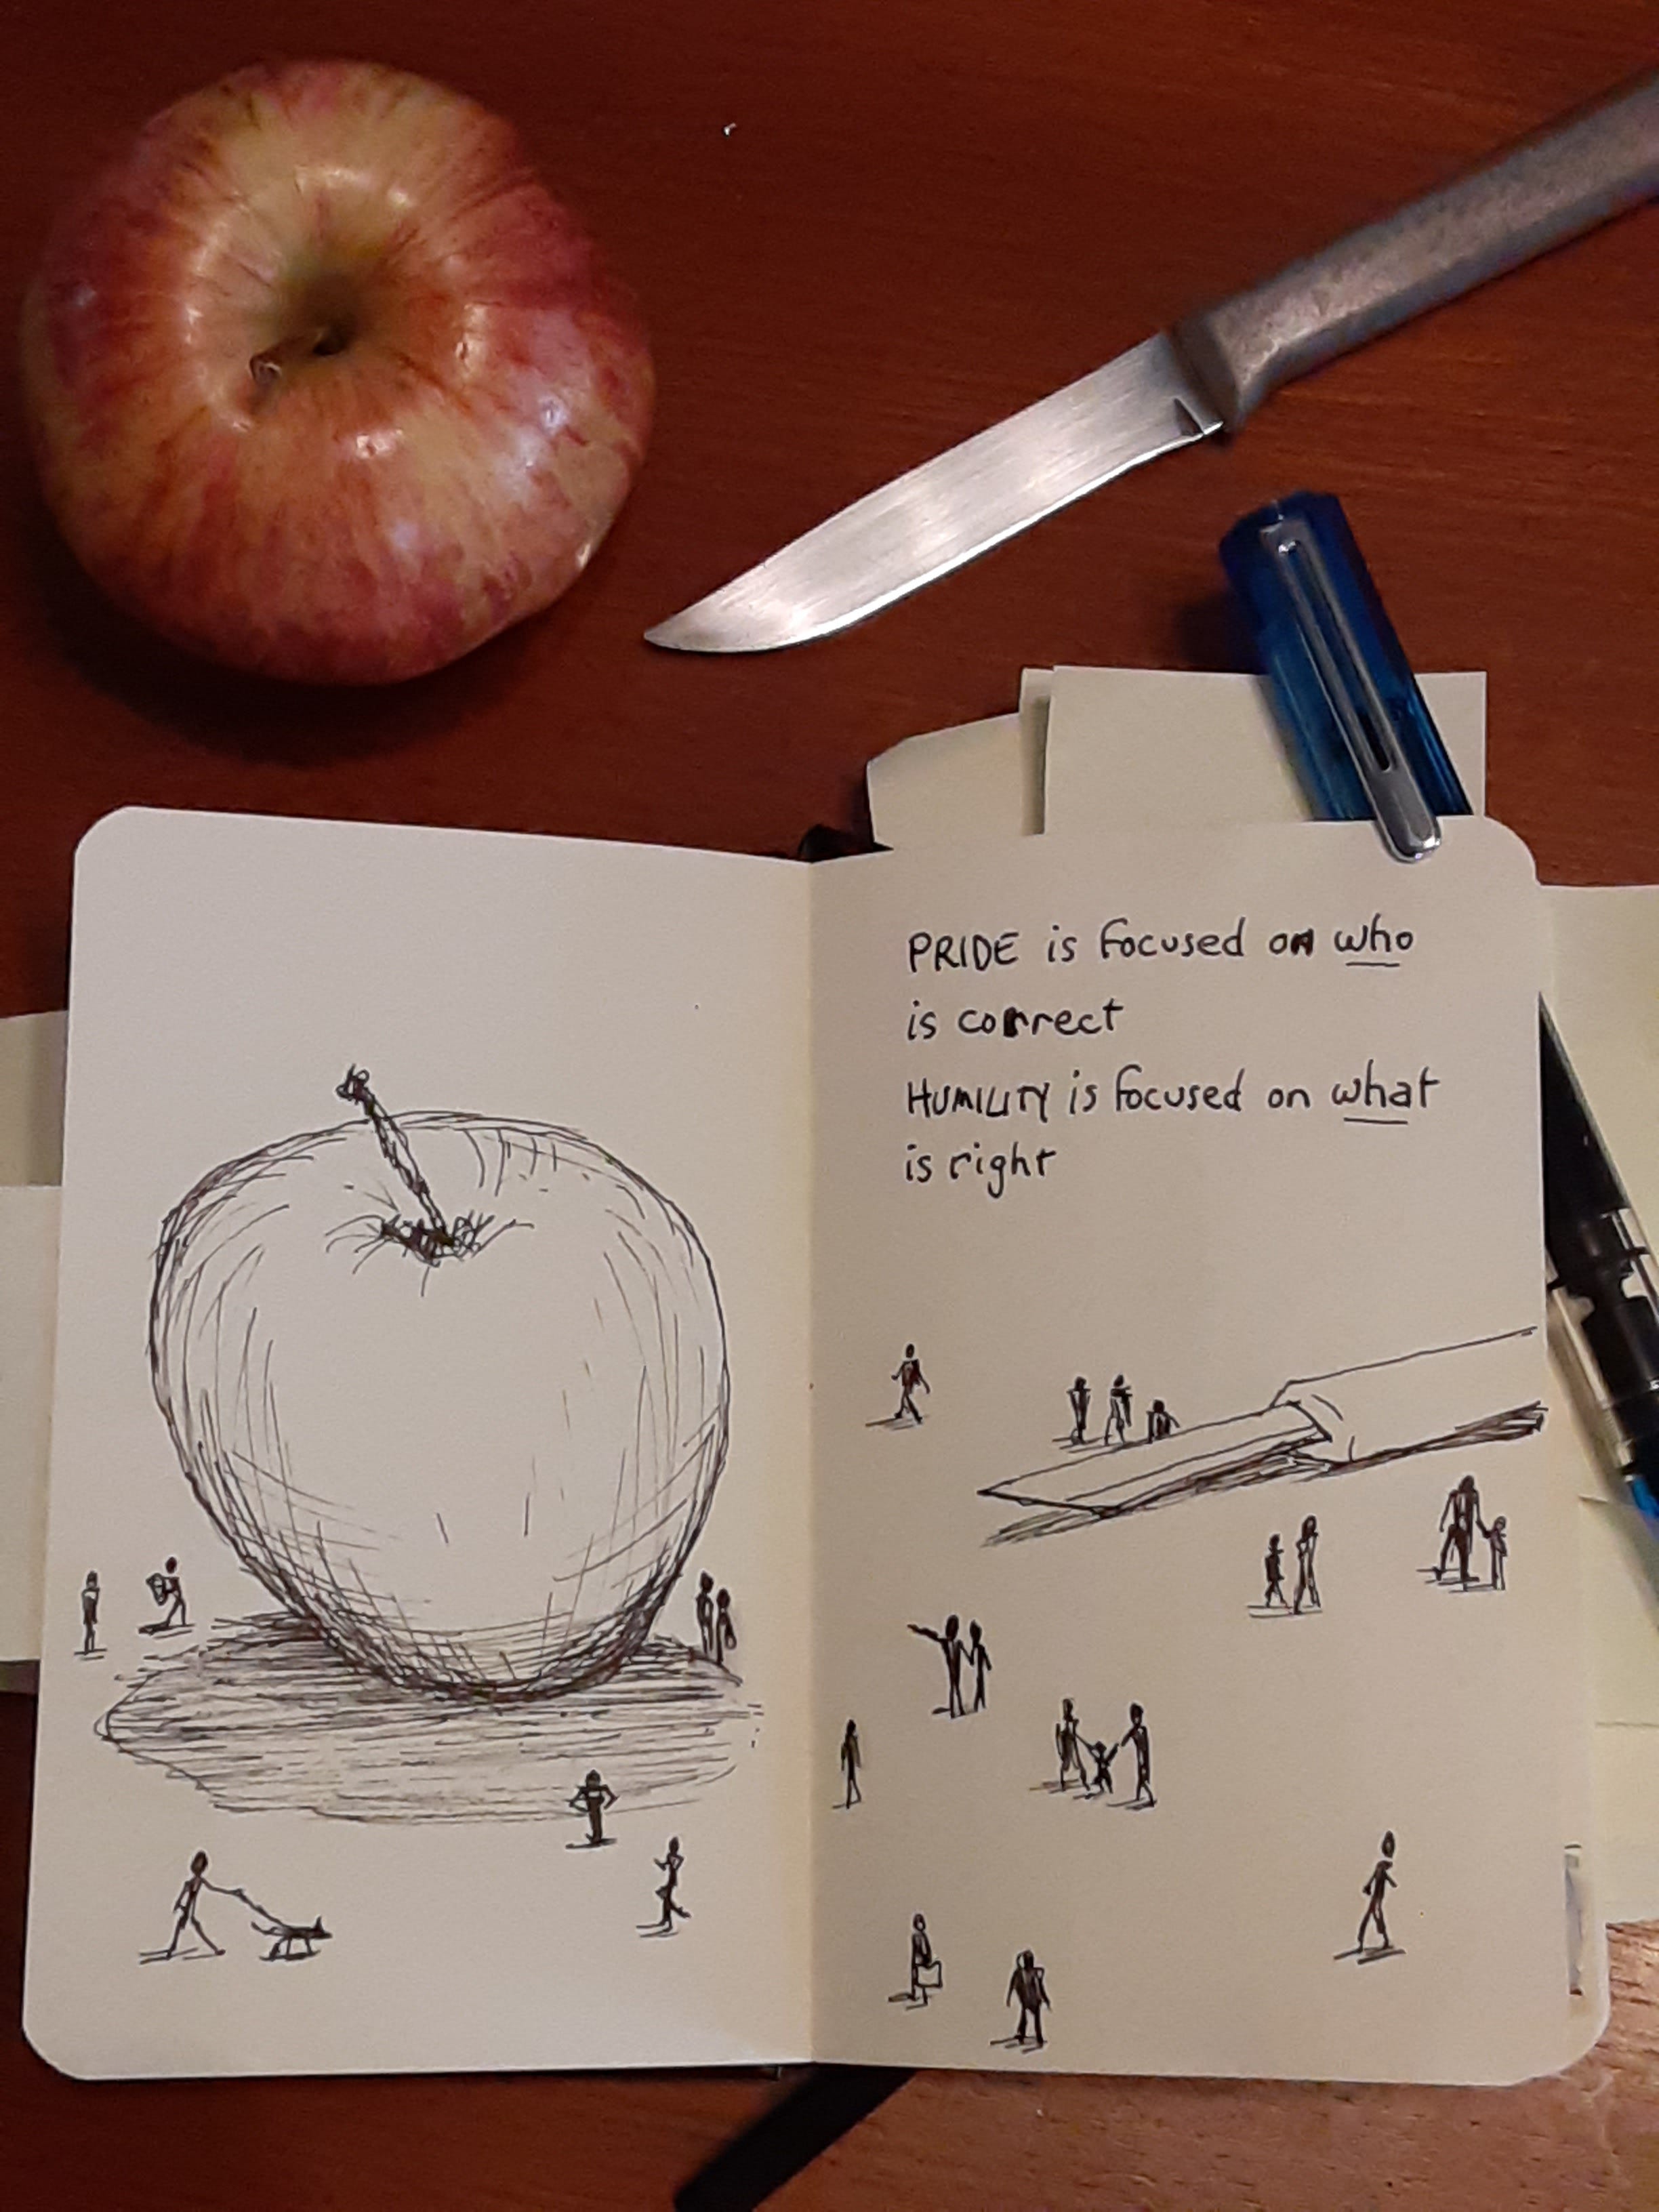 PRIDE is focused on who
is correct
HUMILITY is focused on what
is right